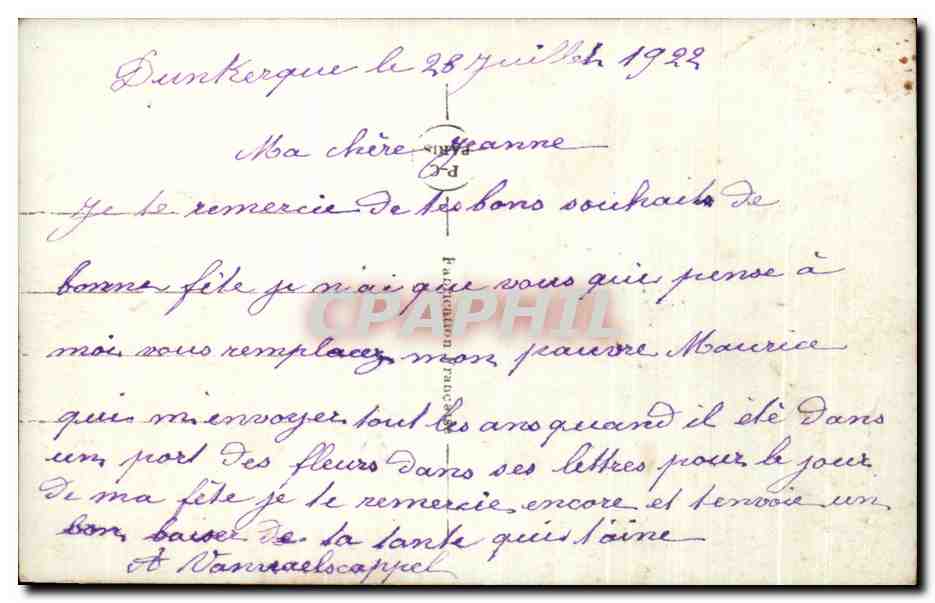 Dunkerque le 28 Juillet 1922
Ma chère Jeanne
P-C
PARIS
Je te remercie de tes bons souhaits de
bonne fête je n'ai que vous qui pense à
moi vous remplacez mon pauvre Maurice
qui m'envoyer tout les ans quand il été dans
un port des fleurs dans ses lettres pour le jour
de ma fête je te remercie encore et t'envoie un
bon baiser de ta tante qui t'aine
A Vanraelscappel
Fabrication Française
CPAPHIL